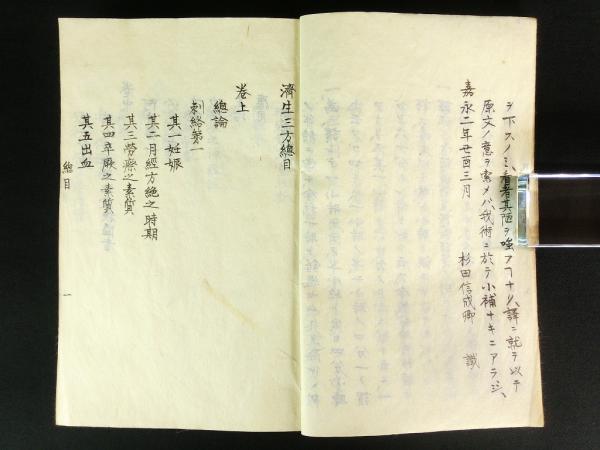 ヲ下スノミ、看者其陋ヲ嗤フヿナク、譯ニ就テ以テ
原文ノ意ヲ索メバ、我術ニ於テ小補ナキニアラジ、
嘉永二年丑酉三月　杉田信成卿　識
濟生三方總目
卷上
總論
刺絡第一
其一妊娠
其二月經方絶之時期
其三勞瘵之素質
其四卒厥之素質
其五出血
總目
一